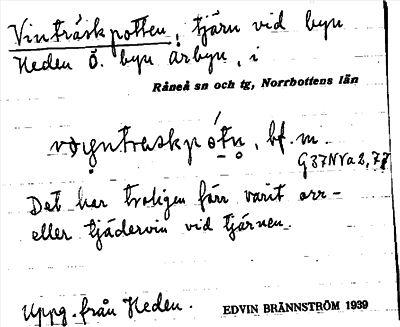 Vinträskpotten, tjärn vid byn
Heden Ö. byn Årbyn, i
Råneå sn och tg, Norrbottens län
bf. m.
G 37 N Va 2, 77
Det har troligen förr varit orr-
eller tjädervin vid tjärnen.
Uppg. från Heden.
EDVIN BRÄNNSTRÖM 1939